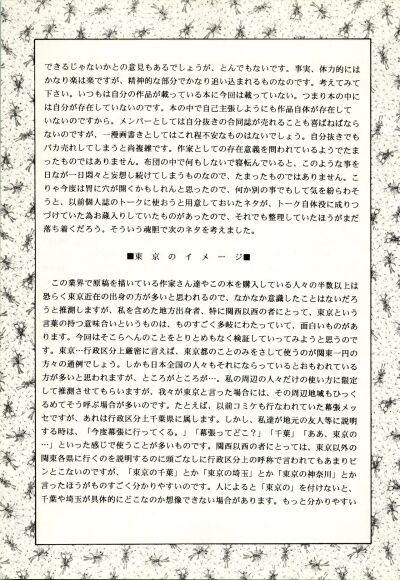 できるじゃないかとの意見もあるでしょうが、とんでもないです。事実、体力的には
かなり楽は楽ですが、精神的な部分でかなり追い込まれるものなのです。考えてみて
下さい。いつもは自分の作品が載っている本に今回は載っていない。つまり本の中に
は自分が存在していないのです。本の中で自己主張しようにも作品自体が存在して
いないのですから。メンバーとしては自分抜きの合同誌が売れることも喜ばねばなら
ないのですが、一漫画書きとしてはこれ程不安なものはないでしょう。自分抜きでも
バカ売れしてしまうと尚複雑です。作家としての存在意義を問われているようでたま
ったものではありません。布団の中で何もしないで寝転んでいると、このような事を
日なが一日悶々と妄想し続けてしまうものなので、たまったものではありません。こ
りゃ今度は胃に穴が開くかもしれんと思ったので、何か別の事でもして気を紛らわそ
うと、以前個人誌のトークに使おうと用意しておいたネタが、トーク自体役に成りつ
づけていた為お蔵入りしていたものがあったので、それでも整理していたほうがまだ
落ち着くだろう。そういう魂胆で次のネタを考えました。
■東京のイメージ■
この業界で原稿を描いている作家さん達やこの本を購入している人々の半数以上は
恐らく東京近在の出身の方が多いと思われるので、なかなか意識したことはないだろ
うと推測しますが、私を含めた地方出身者、特に関西以西の者にとって、東京という
言葉の持つ意味合いというものは、ものすごく多岐にわたっていて、面白いものがあ
ります。今回はそこらへんのことをとりとめもなく検証していってみようと思うので
す。東京…行政区分上厳密に言えば、東京都のことのみをさして使うのが関東一円の
方々の通例でしょう。しかも日本全国の人々もそれにならっているとおもわれている
方が多いと思われますが、ところがところが…。私の周辺の人々だけの使い方に限定
して推測させてもらいますが、我々が東京と言った場合には、その周辺地域もひっく
るめてそう呼ぶ場合が多いのです。たとえば、以前コミケも行なわれていた幕張メッ
セですが、あれは行政区分上千葉県に属します。しかし、私達が地元の友人等に説明
する時は、「今度幕張に行ってくる。」「幕張ってどこ？」「千葉」「ああ、東京の
…」といった感じで使うことが多いものです。関西以西の者にとっては、東京以外の
関東各県に行くのを説明するのに頭ごなしに行政区分上の呼称で言われてもあまりピ
ンとこないのですが、「東京の千葉」とか「東京の埼玉」とか「東京の神奈川」とか
言ったほうがものすごく分かりやすいのです。人によると「東京の」を付けないと、
千葉や埼玉が具体的にどこなのか想像できない場合があります。もっと分かりやすい